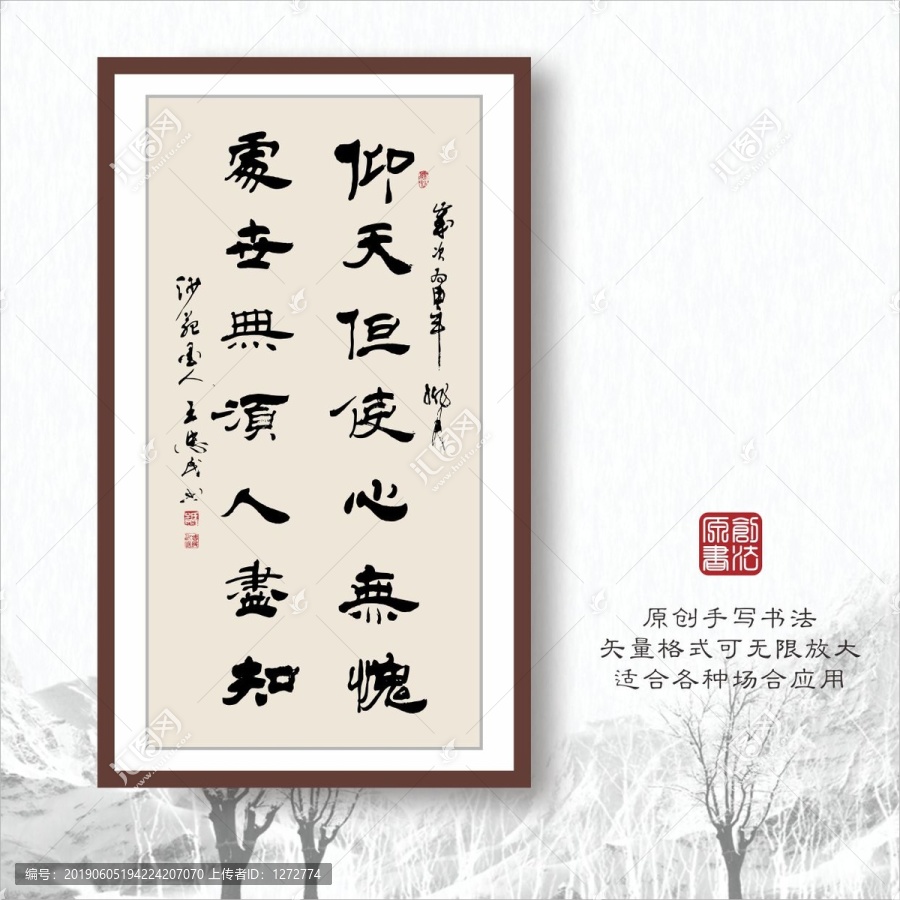 仰天但使心無愧
處世無須人盡知
歲次丙申年
沙苑墨人
原創書法
原创手写书法
矢量格式可无限放大
适合各种场合应用
编号：20190605194224207070 上传者ID：1272774
汇图网
www.huitu.com